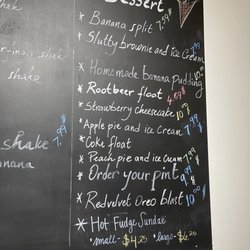 Dessert
* Banana split 7.59
* Slutty brownie and ice Cream
* Homemade banana Pudding
* Rootbeer float 4.69
* Strawberry cheesecake
* Apple pie and ice Cream 7.99
* Coke float
* Peach pie and ice cream
* Order your pint 9.99
* Redvelvet Oreo blast
* Hot Fudge Sundae
small - $4.25 large - $6.25
shake
shake
shake 7.99
banana